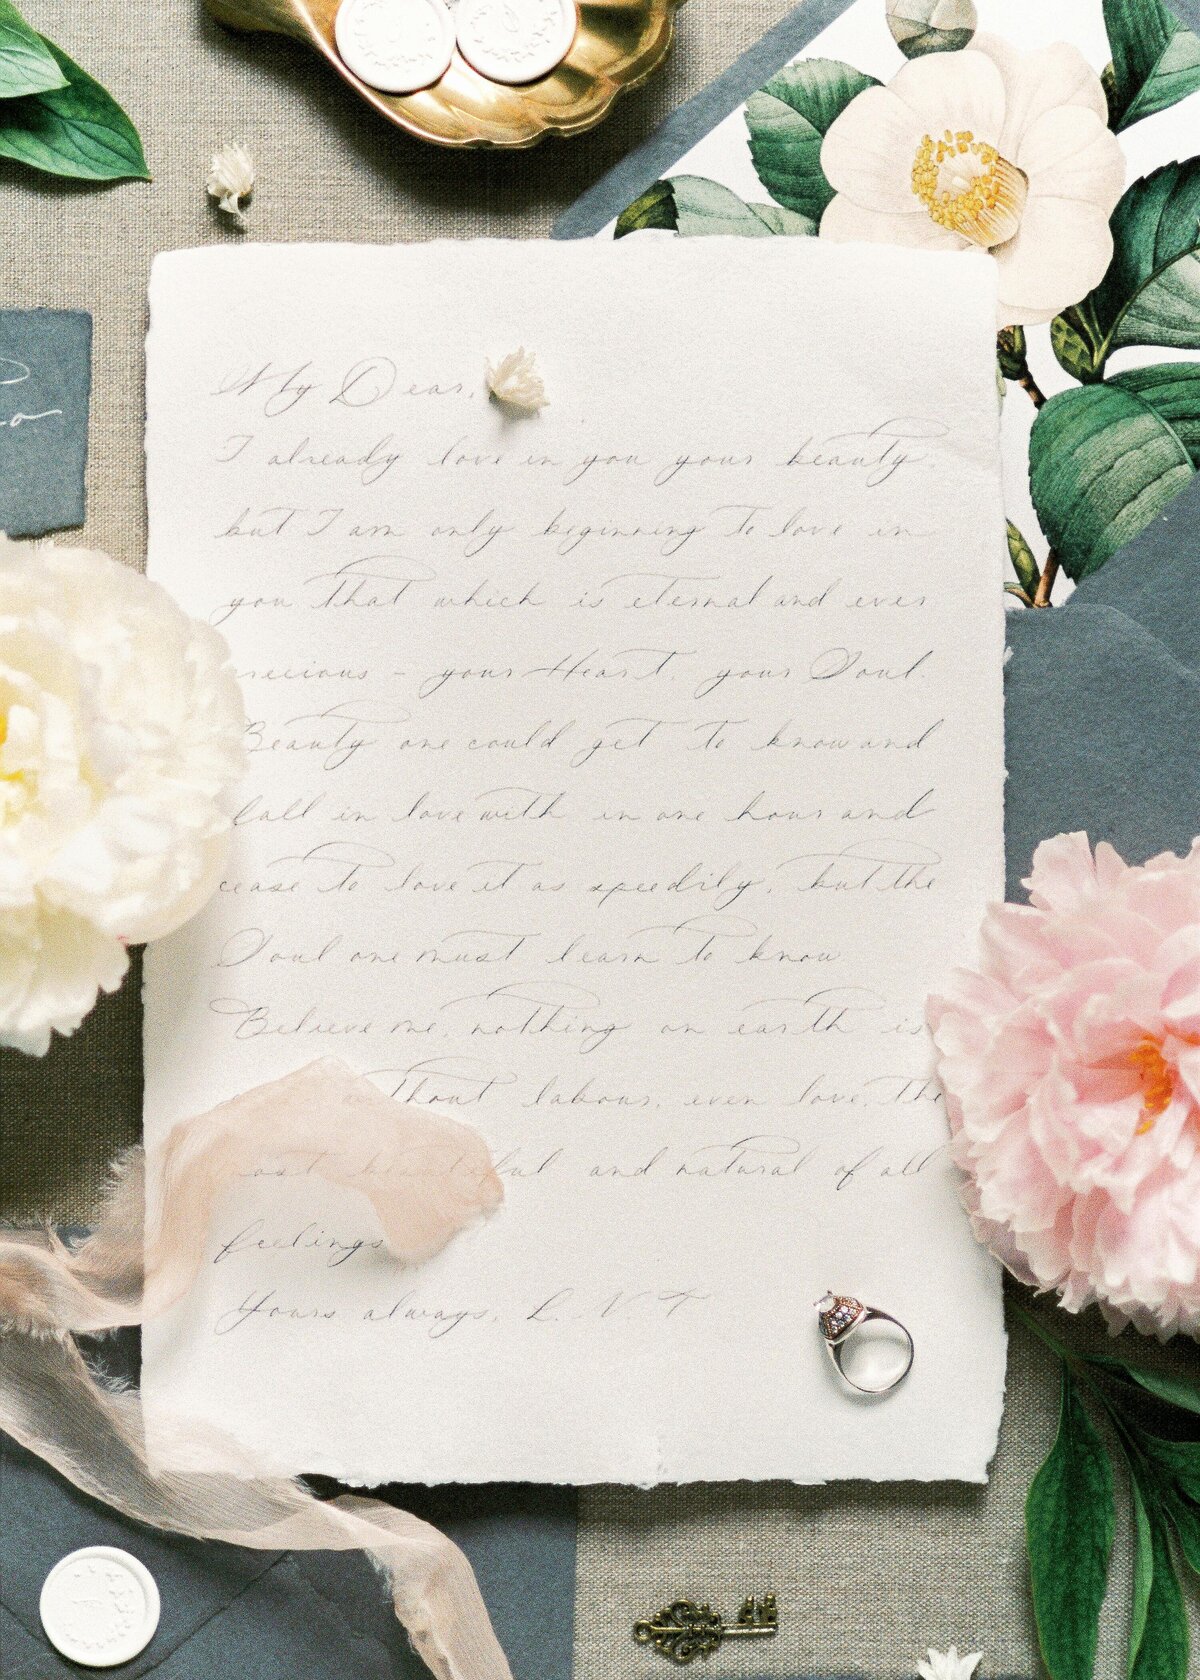 My Dear,
I already love in you your beauty,
but I am only beginning to love in
you that which is eternal and ever
precious - your Heart, your Soul.
Beauty one could get to know and
fall in love with in one hour and
cease to love it as speedily, but the
Soul one must learn to know
Believe me, nothing on earth is
without labour, even love, the
most beautiful and natural of all
feelings
Yours always, L. V. T